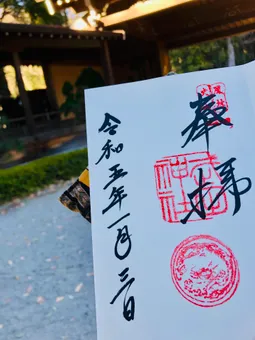 奉拝
令和五年一月三日